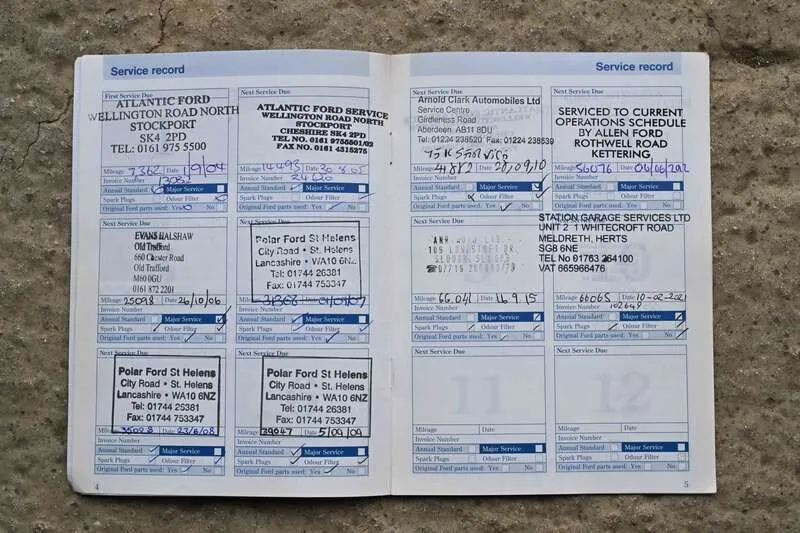 Service record
First Service Due
ATLANTIC FORD
WELLINGTON ROAD NORTH
STOCKPORT
SK4 2PD
TEL: 0161 975 5500
Mileage 7,362 Date 1/9/04
Invoice Number
Annual Standard Major Service
Spark Plugs Odour Filter
Original Ford parts used: Yes No
Next Service Due
ATLANTIC FORD SERVICE
WELLINGTON ROAD NORTH
STOCKPORT
CHESHIRE SK4 2PD
TEL NO. 0161 9755501/02
FAX NO. 0161 4315275
Mileage 14493 Date 30.8.05
Invoice Number
Annual Standard Major Service
Spark Plugs Odour Filter
Original Ford parts used: Yes No
Next Service Due
EVANS HALSHAW
Old Trafford
660 Chester Road
Old Trafford
M60 0GU
0161 872 2201
Mileage 25098 Date 26/10/06
Invoice Number
Annual Standard Major Service
Spark Plugs Odour Filter
Original Ford parts used: Yes No
Next Service Due
Polar Ford St Helens
City Road • St. Helens
Lancashire • WA10 6NZ
Tel: 01744 26381
Fax: 01744 753347
Mileage Date
Invoice Number
Annual Standard Major Service
Spark Plugs Odour Filter
Original Ford parts used: Yes No
Next Service Due
Polar Ford St Helens
City Road • St. Helens
Lancashire • WA10 6NZ
Tel: 01744 26381
Fax: 01744 753347
Mileage Date 23/6/08
Invoice Number
Annual Standard Major Service
Spark Plugs Odour Filter
Original Ford parts used: Yes No
Next Service Due
Polar Ford St Helens
City Road • St. Helens
Lancashire • WA10 6NZ
Tel: 01744 26381
Fax: 01744 753347
Mileage 39047 Date 5/09/09
Invoice Number
Annual Standard Major Service
Spark Plugs Odour Filter
Original Ford parts used: Yes No
4
Service record
Next Service Due
Arnold Clark Automobiles Ltd
Service Centre
Girdleness Road
Aberdeen AB11 8DU
Tel: 01224 238520 Fax: 01224 238539
Mileage 41882 Date 20,09,10
Invoice Number
Annual Standard Major Service
Spark Plugs Odour Filter
Original Ford parts used: Yes No
Next Service Due
SERVICED TO CURRENT
OPERATIONS SCHEDULE
BY ALLEN FORD
ROTHWELL ROAD
KETTERING
Mileage 56076 Date 06/06/2012
Invoice Number
Annual Standard Major Service
Spark Plugs Odour Filter
Original Ford parts used: Yes No
Next Service Due
Mileage 66.041 Date 14.9.15
Invoice Number
Annual Standard Major Service
Spark Plugs Odour Filter
Original Ford parts used: Yes No
STATION GARAGE SERVICES LTD
UNIT 2 1 WHITECROFT ROAD
MELDRETH, HERTS
SG8 6NE
TEL No 01763 264100
VAT 665966476
Mileage 66065 Date 10-02-2021
Invoice Number 102649
Annual Standard Major Service
Spark Plugs Odour Filter
Original Ford parts used: Yes No
Next Service Due
11
Mileage Date
Invoice Number
Annual Standard Major Service
Spark Plugs Odour Filter
Original Ford parts used: Yes No
Next Service Due
12
Mileage Date
Invoice Number
Annual Standard Major Service
Spark Plugs Odour Filter
Original Ford parts used: Yes No
5